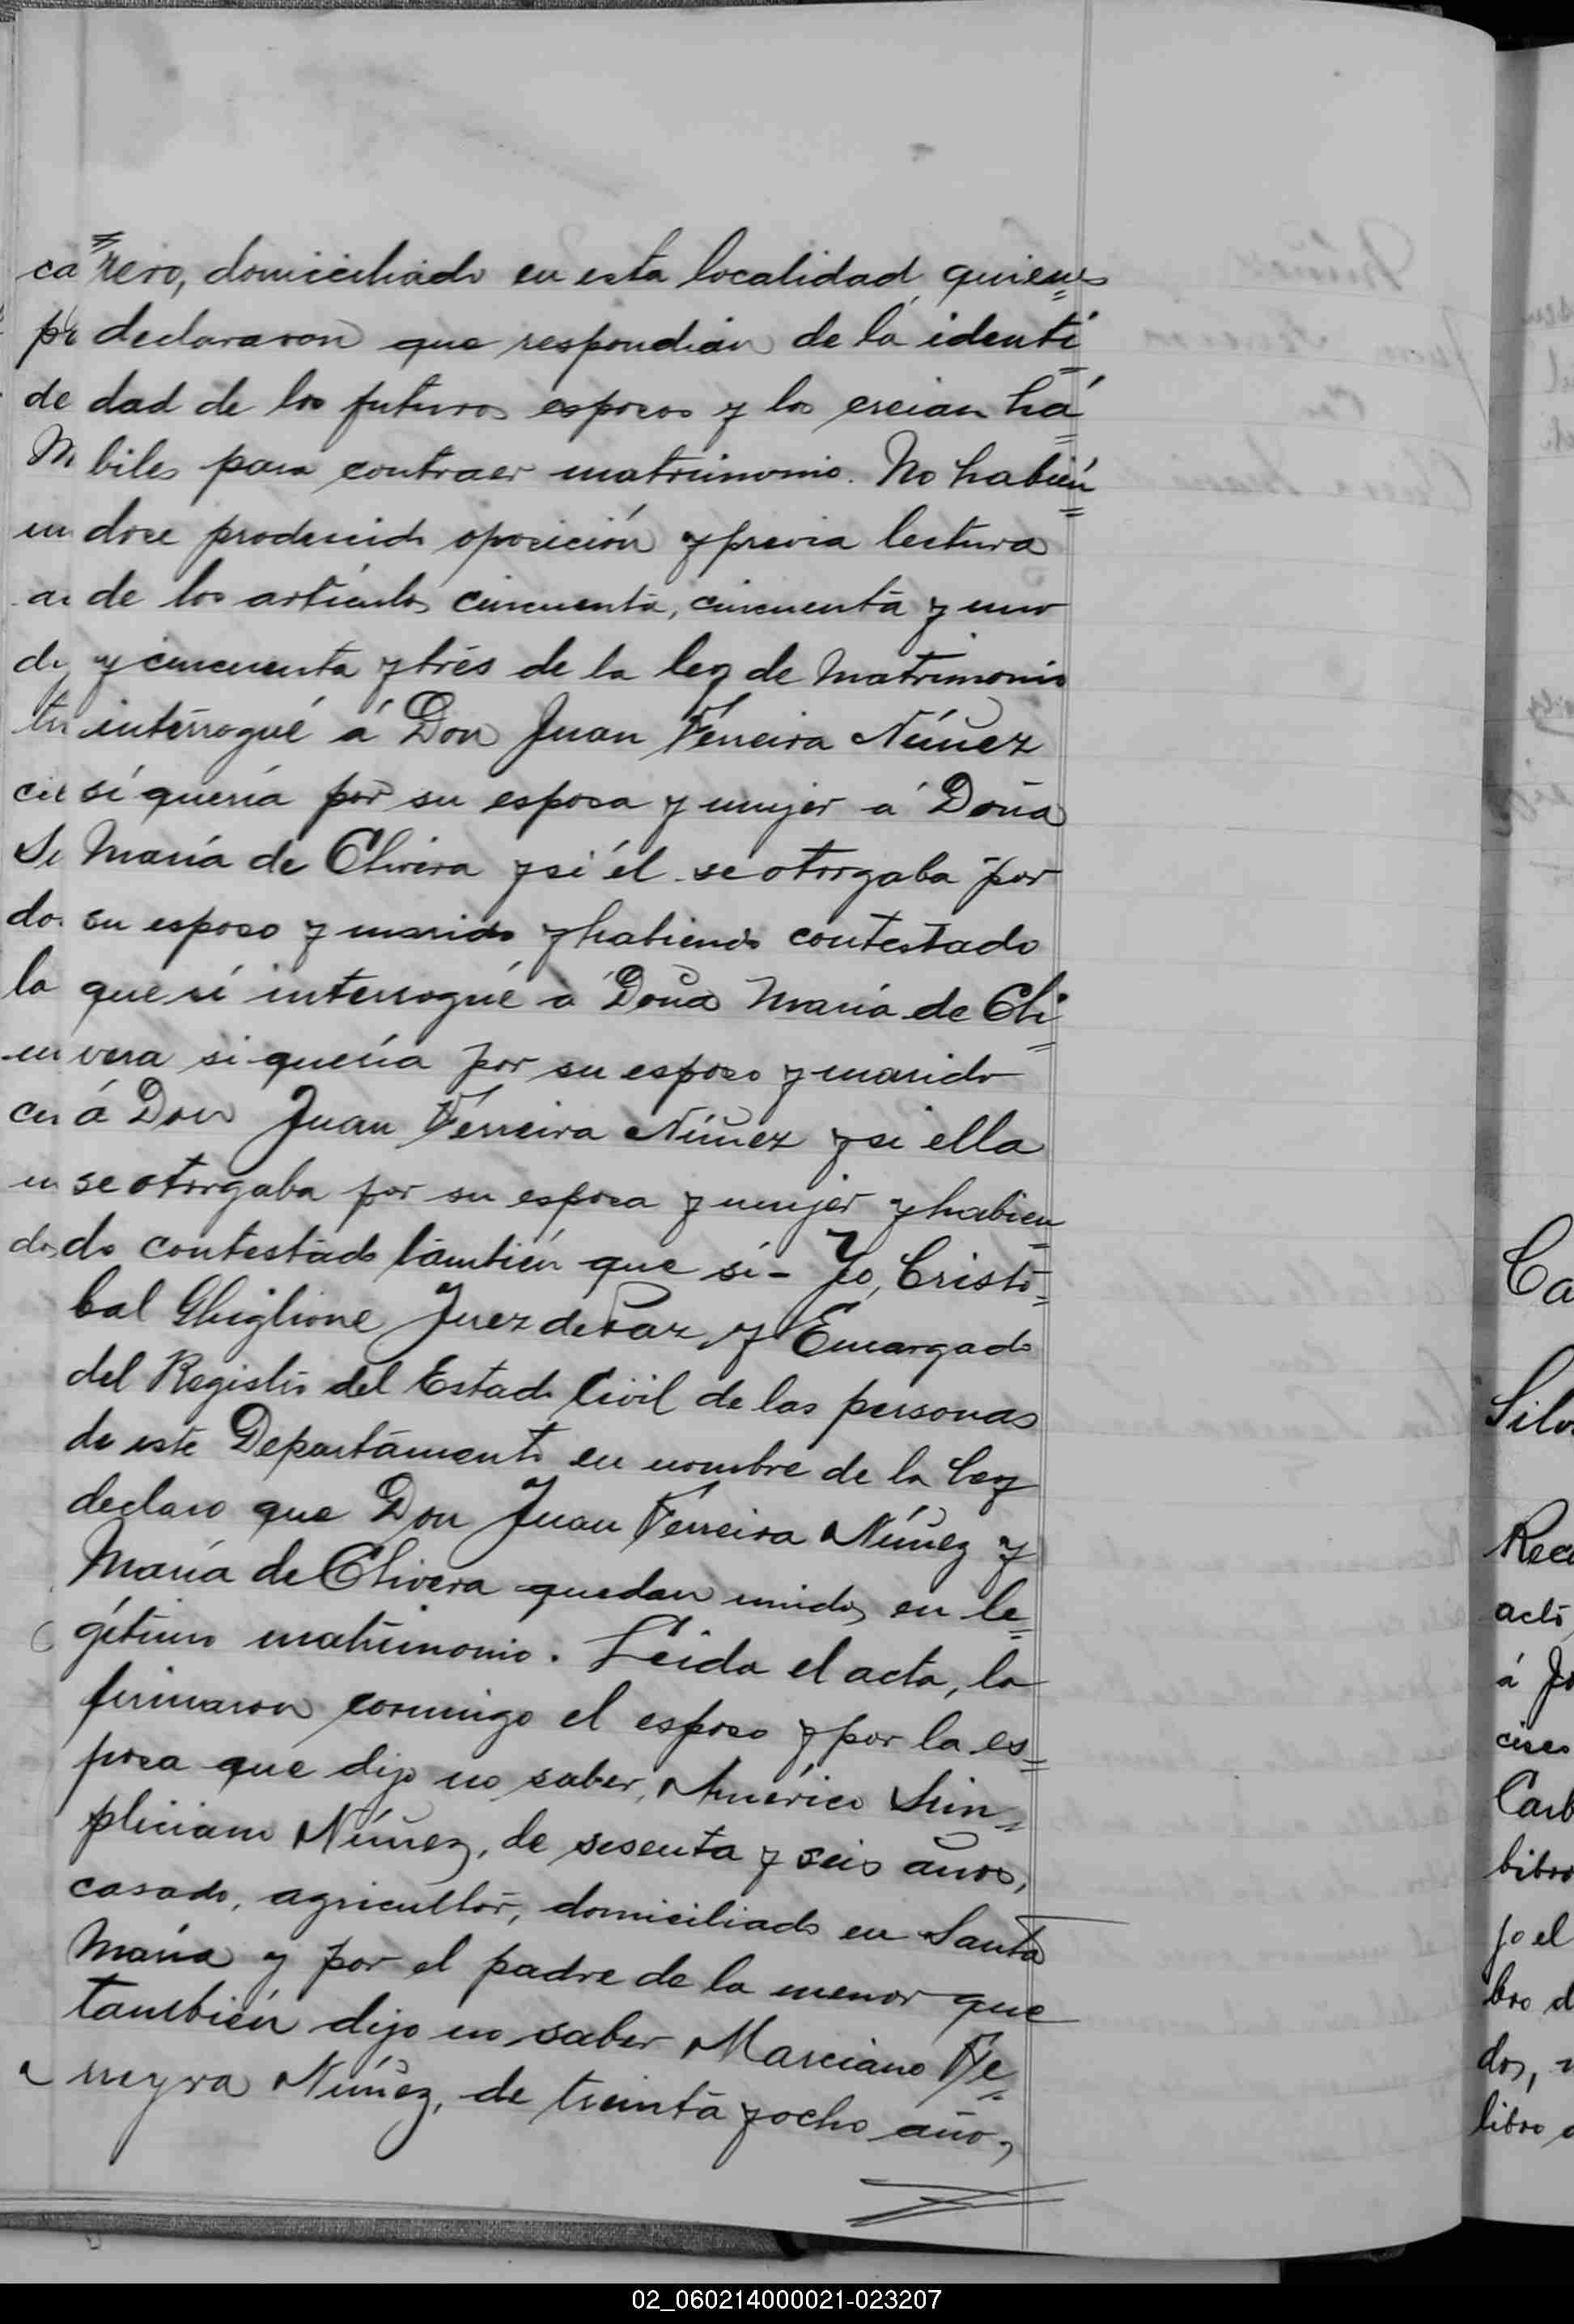 ca nero, domiciliado en esta localidad, quienes
pr declararon que respondían de la identi=
de dad de los futuros esposos y los creian há=
M biles para contraer matrimonio. No habién=
un dose producido oposición y previa lectura
de los artículos cincuenta, cincuenta y uno
de y cincuenta y trés de la ley de Matrimonio
interrogué á Don Juan Ferreira Núñez
si quería por su esposa y mujer á Doña
Maria de Olivera y si él se otorgaba por
do su esposo y marido y habiendo contestado
la que sí interrogué á Doña Maria de Oli=
en vera si quería por su esposo y marido
á Don Juan Ferreira Núñez y si ella
se otorgaba por su esposa y mujer y habien=
do contestado también que si - Yo, Cristó=
bal Ghiglione Juez de Paz y Encargado
del Registro del Estado Civil de las personas
de este Departamento en nombre de la Ley
declaro que Don Juan Ferreira Núñez y
María de Olivera quedan unidos en le=
gítimo matrimonio. Leida el acta, la
firmaron conmigo el esposo y por la es=
posa que dijo no saber, Américo Sim=
pliciano Núñez, de sesenta y seis años,
casado, agricultor, domiciliado en Santa
María y por el padre de la menor que
también dijo no saber Marciano Fe=
rreyra Núñez, de treinta y ocho años,
Ca
Silv
Rec
acto
á Jo
cisco
Carb
bitor
jo el
bro d
dos,
libro
02_060214000021-023207